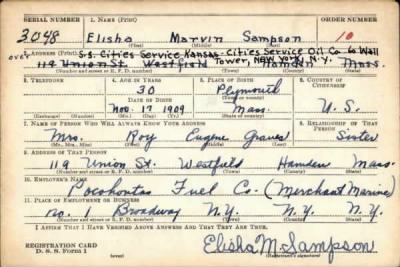 SERIAL NUMBER 1. NAME (Print)
3048 Elisha Marvin Sampson 10
(First) (Middle) (Last)
OVER 2. ADDRESS (Print) S.S. Cities Service Kansas - Cities Service Oil Co 60 Wall
Tower, NEW YORK, N.Y.
119 Union St. Westfield Hamden Mass.
(Number and street or R. F. D. number) (Town) (County) (State)
3. TELEPHONE 4. AGE IN YEARS 5. PLACE OF BIRTH 6. COUNTRY OF CITIZENSHIP
30 Plymouth
DATE OF BIRTH
Nov. 17 1909 Mass. U. S.
7. NAME OF PERSON WHO WILL ALWAYS KNOW YOUR ADDRESS 8. RELATIONSHIP OF THAT PERSON
Mrs. Roy Eugene Graves Sister
(Mr., Mrs., Miss) (First) (Middle) (Last)
9. ADDRESS OF THAT PERSON
119 Union St. Westfield Hamden Mass.
(Number and street or R. F. D. number) (Town) (County) (State)
10. EMPLOYER'S NAME
Pocohontas Fuel Co. (Merchant Marine)
11. PLACE OF EMPLOYMENT OR BUSINESS
No. 1 Broadway N.Y. N.Y. N.Y.
(Number and street or R. F. D. number) (Town) (County) (State)
I AFFIRM THAT I HAVE VERIFIED ABOVE ANSWERS AND THAT THEY ARE TRUE.
REGISTRATION CARD
D. S. S. Form 1
Elisha M. Sampson
(Registrant's signature)